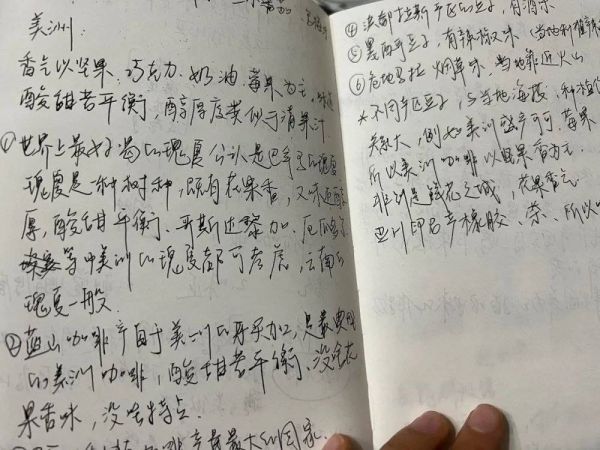 美洲:
香气以坚果、巧克力、奶油、莓果为主,
酸甜苦平衡,醇厚度类似于清果汁
①世界上最好喝的瑰夏公认是巴拿马的瑰夏
瑰夏是种树种,颇有花果香,又味道醇
厚,酸甜平衡、哥斯达黎加、厄瓜多尔
等中美洲的瑰夏都可考虑,云南的
瑰夏一般.
②蓝山咖啡产自于美洲的牙买加,是最典型
的美洲咖啡,酸甜苦平衡、没啥花
果香味,没啥特点.
咖啡产量最大的国家.
④洪都拉斯产区的豆子,有酒味
⑤墨西哥豆子,有辣椒味(当地利
⑥危地马拉 烟草味,当地靠近火山
*不同产区豆子,与当地海拔、种植
关较大,例如美洲盛产可可.莓果
所以美洲咖啡以坚果香为主.
非洲是鲜花之城,花果香气
亚洲印尼产橡胶、茶、所以